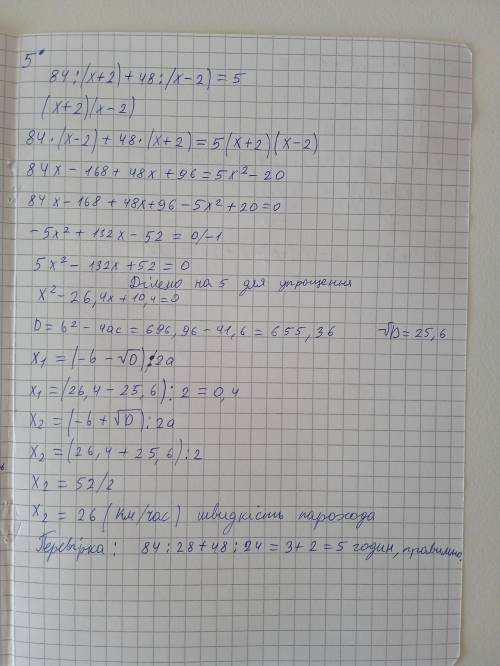 5.
84:(x+2)+48:(x-2)=5
(x+2)(x-2)
84·(x-2)+48·(x+2)=5(x+2)(x-2)
84x-168+48x+96=5x²-20
84x-168+48x+96-5x²+20=0
-5x²+132x-52=0/-1
5x²-132x+52=0
Ділемо на 5 для упрощення
x²-26,4x+10,4=0
D=b²-4ac=696,96-41,6=655,36 √D=25,6
x₁=(-b-√D):2a
x₁=(26,4-25,6):2=0,4
x₂=(-b+√D):2a
x₂=(26,4+25,6):2
x₂=52/2
x₂=26(км/час) швидкість парохода
Перевірка: 84:28+48:24=3+2=5 годин, правильно.